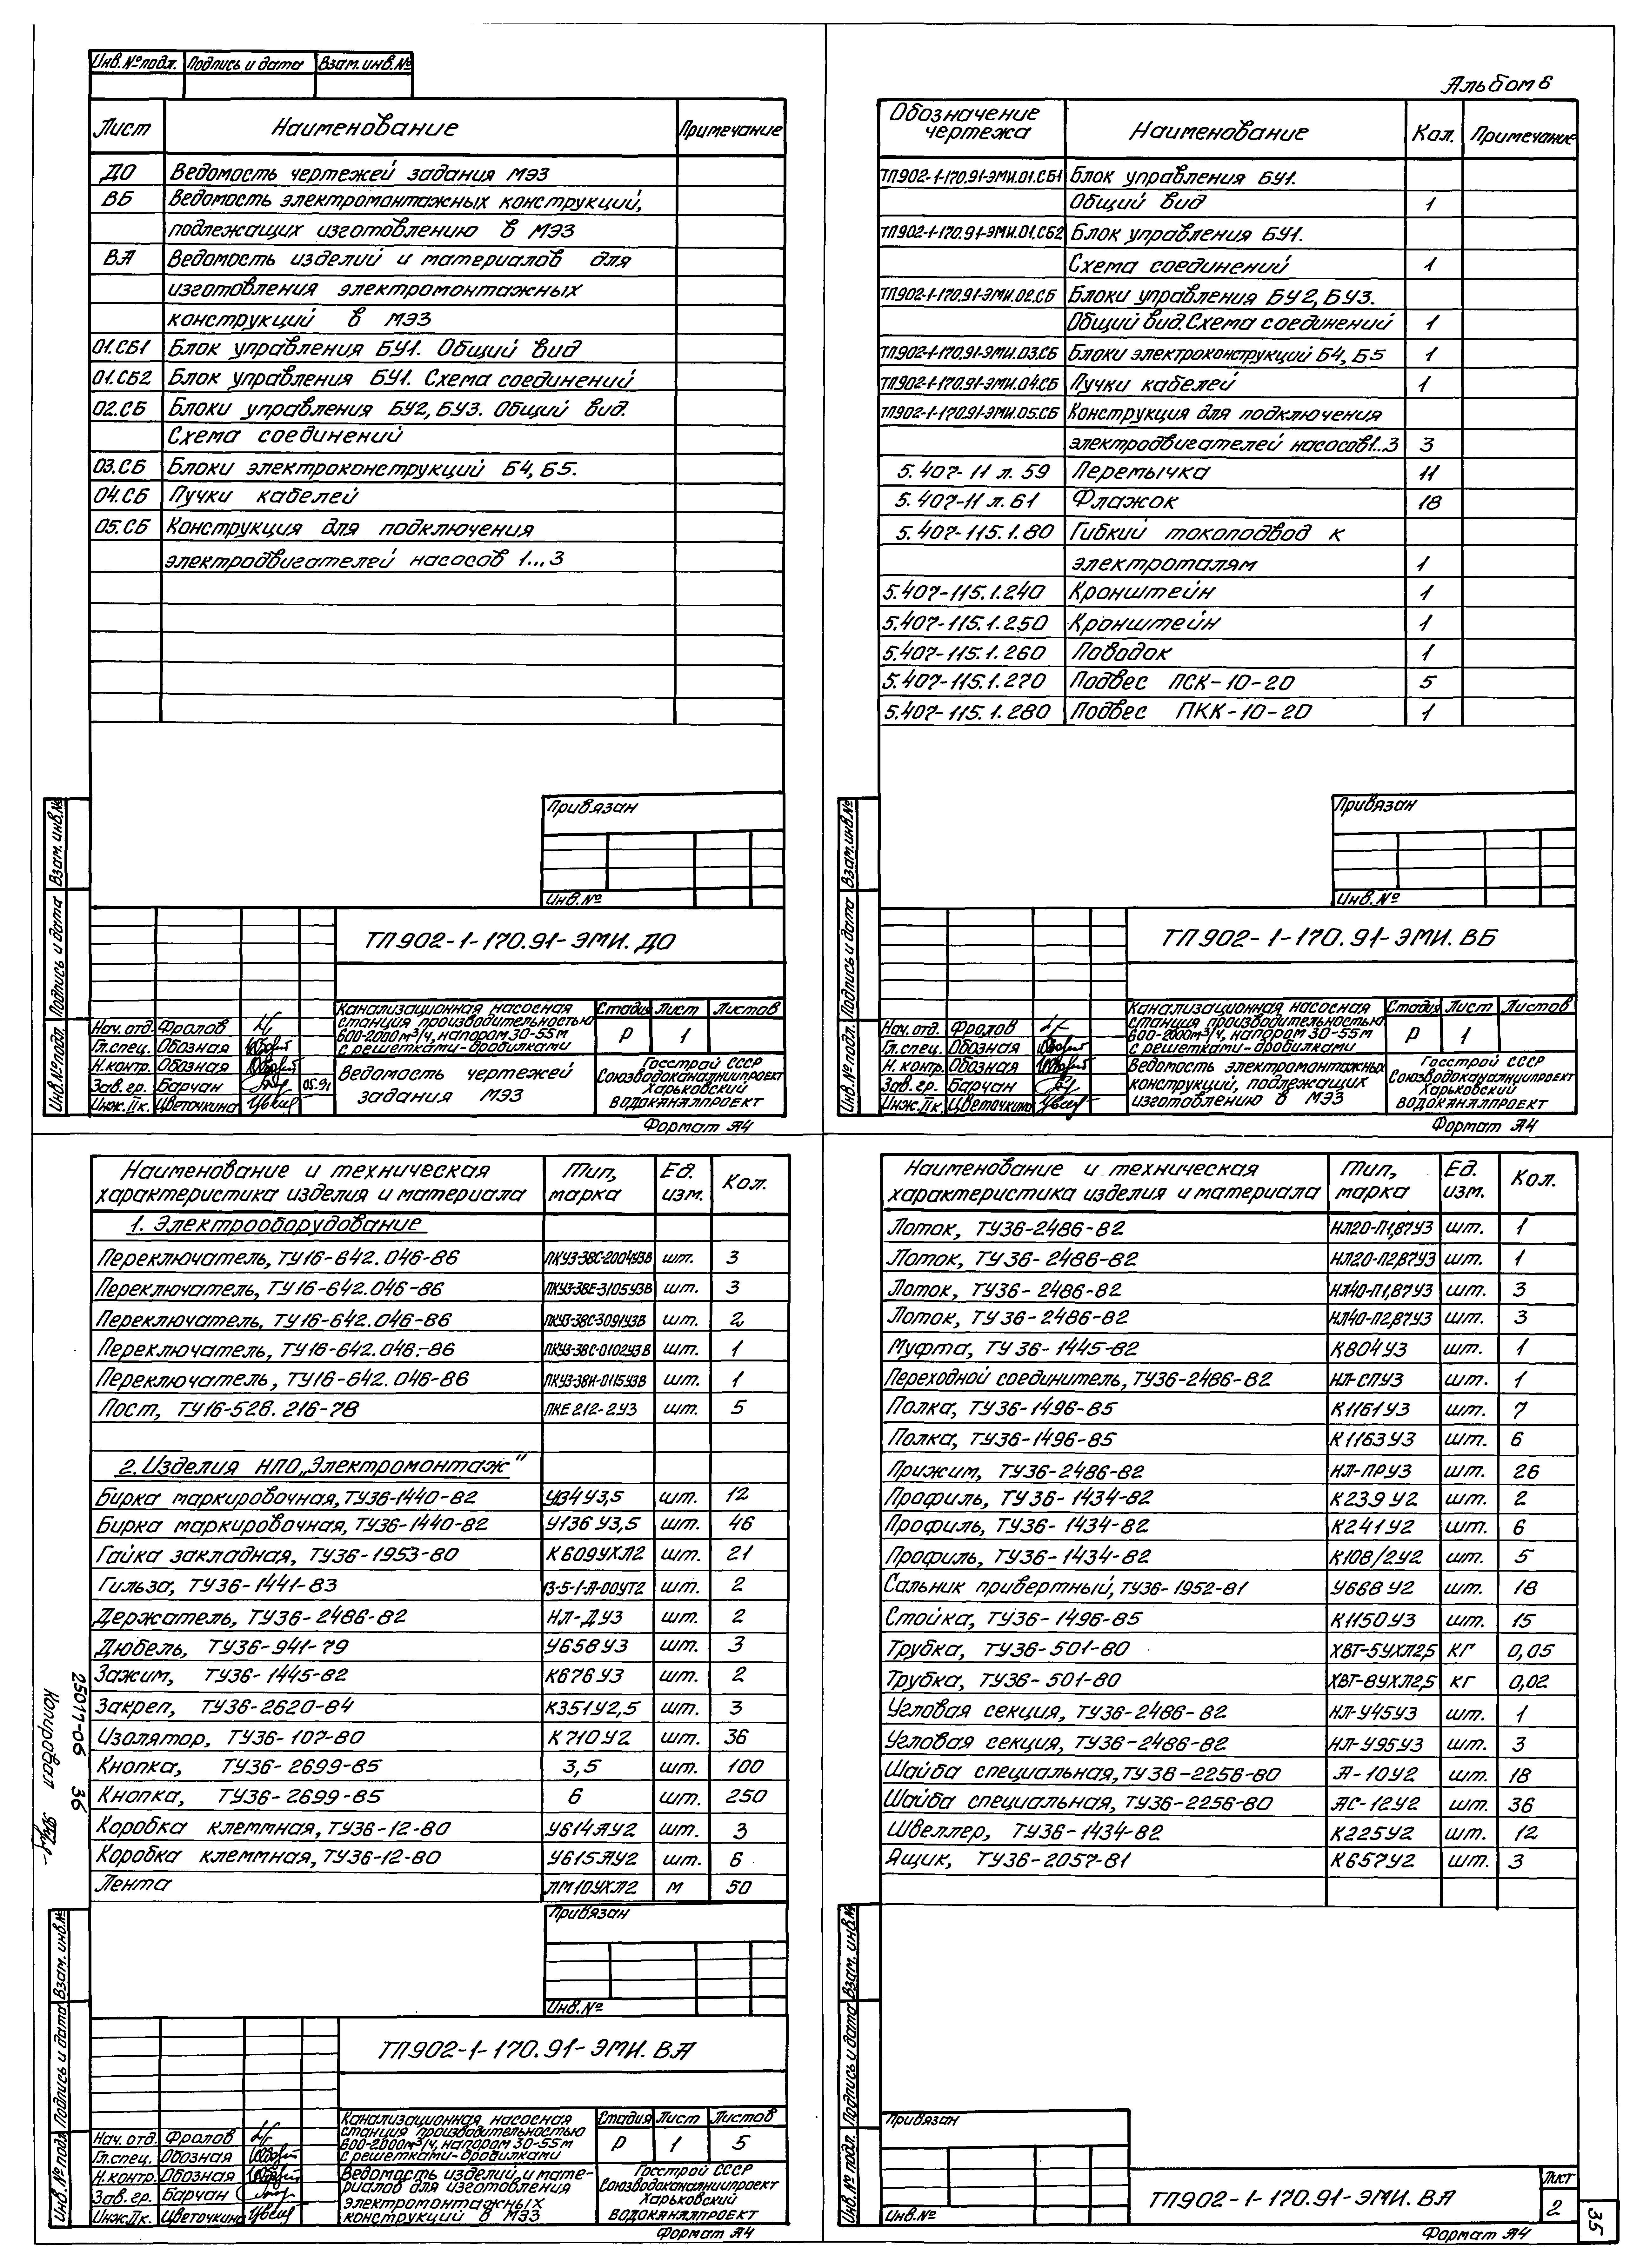 Инв.№подл. Подпись и дата Взам.инв.№
Лист Наименование Примечание
ДО Ведомость чертежей задания МЭЗ
ВБ Ведомость электромонтажных конструкций,
подлежащих изготовлению в МЭЗ
ВА Ведомость изделий и материалов для
изготовления электромонтажных
конструкций в МЭЗ
01.СБ1 Блок управления БУ1. Общий вид
01.СБ2 Блок управления БУ1. Схема соединений
02.СБ Блоки управления БУ2, БУ3. Общий вид.
Схема соединений
03.СБ Блоки электроконструкций Б4, Б5.
04.СБ Пучки кабелей
05.СБ Конструкция для подключения
электродвигателей насосов 1...3
Привязан
Инв.№
Взам.инв.№
Подпись и дата
Инв.№подл.
ТП902-1-170.91-ЭМИ.ДО
Нач.отд. Фролов
Гл.спец. Обозная
Н.контр. Обозная
Зав.гр. Барчан 05.91
Инж.IIк. Цветочкина
Канализационная насосная
станция производительностью
600-2000м³/ч, напором 30-55м
с решетками-дробилками
Стадия Лист Листов
Р 1
Ведомость чертежей
задания МЭЗ
Госстрой СССР
Союзводоканалниипроект
Харьковский
ВОДОКАНАЛПРОЕКТ
Формат А4
Альбом 6
Обозначение чертежа Наименование Кол. Примечание
ТП902-1-170.91-ЭМИ.01.СБ1 Блок управления БУ1.
Общий вид 1
ТП902-1-170.91-ЭМИ.01.СБ2 Блок управления БУ1.
Схема соединений 1
ТП902-1-170.91-ЭМИ.02.СБ Блоки управления БУ2, БУ3.
Общий вид. Схема соединений 1
ТП902-1-170.91-ЭМИ.03.СБ Блоки электроконструкций Б4, Б5 1
ТП902-1-170.91-ЭМИ.04.СБ Пучки кабелей 1
ТП902-1-170.91-ЭМИ.05.СБ Конструкция для подключения
электродвигателей насосов1...3 3
5.407-11 л.59 Перемычка 11
5.407-11 л.61 Флажок 18
5.407-115.1.80 Гибкий токоподвод к
электроталям 1
5.407-115.1.240 Кронштейн 1
5.407-115.1.250 Кронштейн 1
5.407-115.1.260 Поводок 1
5.407-115.1.270 Подвес ПСК-10-20 5
5.407-115.1.280 Подвес ПКК-10-20 1
Привязан
Инв.№
Взам.инв.№
Подпись и дата
Инв.№подл.
ТП902-1-170.91-ЭМИ.ВБ
Нач.отд. Фролов
Гл.спец. Обозная
Н.контр. Обозная
Зав.гр. Барчан
Инж.IIк. Цветочкина
Канализационная насосная
станция производительностью
600-2000м³/ч, напором 30-55м
с решетками-дробилками
Стадия Лист Листов
Р 1
Ведомость электромонтажных
конструкций, подлежащих
изготовлению в МЭЗ
Госстрой СССР
Союзводоканалниипроект
Харьковский
ВОДОКАНАЛПРОЕКТ
Формат А4
Наименование и техническая характеристика изделия и материала Тип, марка Ед. изм. Кол.
1. Электрооборудование
Переключатель, ТУ16-642.046-86 ПКУ3-38С-2004У3В шт. 3
Переключатель, ТУ16-642.046-86 ПКУ3-38Е-3105У3В шт. 3
Переключатель, ТУ16-642.046-86 ПКУ3-38С-3091У3В шт. 2
Переключатель, ТУ16-642.046-86 ПКУ3-38С-0102У3В шт. 1
Переключатель, ТУ16-642.046-86 ПКУ3-38И-0115У3В шт. 1
Пост, ТУ16-526.216-78 ПКЕ212-2У3 шт. 5
2. Изделия НПО „Электромонтаж"
Бирка маркировочная, ТУ36-1440-82 У134У3,5 шт. 12
Бирка маркировочная, ТУ36-1440-82 У136У3,5 шт. 46
Гайка закладная, ТУ36-1953-80 К609УХЛ2 шт. 21
Гильза, ТУ36-1441-83 13-5-1-А-00УТ2 шт. 2
Держатель, ТУ36-2486-82 НЛ-ДУ3 шт. 2
Дюбель, ТУ36-941-79 У658У3 шт. 3
Зажим, ТУ36-1445-82 К676У3 шт. 2
Закреп, ТУ36-2620-84 К351У2,5 шт. 3
Изолятор, ТУ36-107-80 К710У2 шт. 36
Кнопка, ТУ36-2699-85 3,5 шт. 100
Кнопка, ТУ36-2699-85 6 шт. 250
Коробка клеммная, ТУ36-12-80 У614АУ2 шт. 3
Коробка клеммная, ТУ36-12-80 У615АУ2 шт. 6
Лента ЛМ10УХЛ2 м 50
Привязан
Инв.№
25017-06 36
Копировал
Взам.инв.№
Подпись и дата
Инв.№подл.
ТП902-1-170.91-ЭМИ.ВА
Нач.отд. Фролов
Гл.спец. Обозная
Н.контр. Обозная
Зав.гр. Барчан
Инж.IIк. Цветочкина
Канализационная насосная
станция производительностью
600-2000м³/ч, напором 30-55м
с решетками-дробилками
Стадия Лист Листов
Р 1 5
Ведомость изделий и мате-
риалов для изготовления
электромонтажных
конструкций в МЭЗ
Госстрой СССР
Союзводоканалниипроект
Харьковский
ВОДОКАНАЛПРОЕКТ
Формат А4
Наименование и техническая характеристика изделия и материала Тип, марка Ед. изм. Кол.
Лоток, ТУ36-2486-82 НЛ20-П1,87У3 шт. 1
Лоток, ТУ36-2486-82 НЛ20-П2,87У3 шт. 1
Лоток, ТУ36-2486-82 НЛ40-П1,87У3 шт. 3
Лоток, ТУ36-2486-82 НЛ40-П2,87У3 шт. 3
Муфта, ТУ36-1445-82 К804У3 шт. 1
Переходной соединитель, ТУ36-2486-82 НЛ-СПУ3 шт. 1
Полка, ТУ36-1496-85 К1161У3 шт. 7
Полка, ТУ36-1496-85 К1163У3 шт. 6
Прижим, ТУ36-2486-82 НЛ-ПРУ3 шт. 26
Профиль, ТУ36-1434-82 К239У2 шт. 2
Профиль, ТУ36-1434-82 К241У2 шт. 6
Профиль, ТУ36-1434-82 К108/2У2 шт. 5
Сальник привертный, ТУ36-1952-81 У668У2 шт. 18
Стойка, ТУ36-1496-85 К1150У3 шт. 15
Трубка, ТУ36-501-80 ХВТ-5УХЛ2,5 кг 0,05
Трубка, ТУ36-501-80 ХВТ-8УХЛ2,5 кг 0,02
Угловая секция, ТУ36-2486-82 НЛ-У45У3 шт. 1
Угловая секция, ТУ36-2486-82 НЛ-У95У3 шт. 3
Шайба специальная, ТУ36-2256-80 А-10У2 шт. 18
Шайба специальная, ТУ36-2256-80 АС-12У2 шт. 36
Швеллер, ТУ36-1434-82 К225У2 шт. 12
Ящик, ТУ36-2057-81 К657У2 шт. 3
Взам.инв.№
Подпись и дата
Инв.№ подл.
Привязан
Инв.№
ТП902-1-170.91-ЭМИ.ВА
Лист
2
Формат А4
35